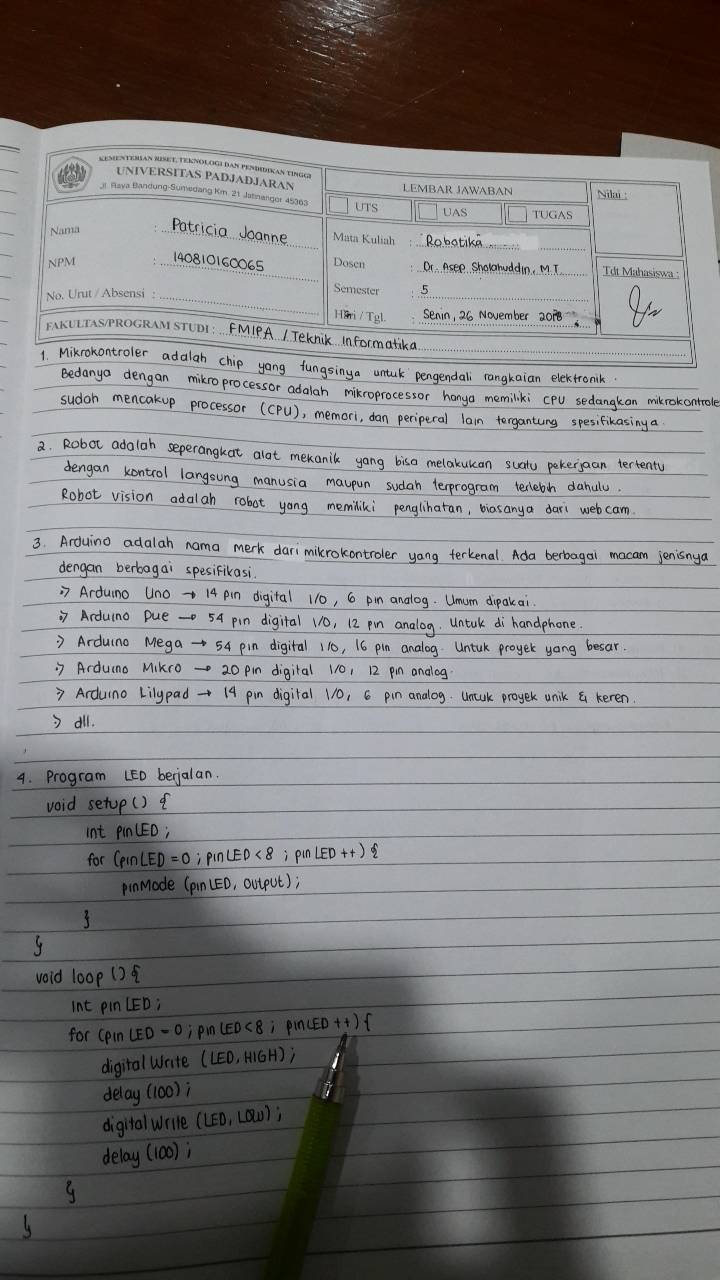 KEMENTERIAN RISET, TEKNOLOGI DAN PENDIDIKAN TINGGI
UNIVERSITAS PADJADJARAN
Jl. Raya Bandung-Sumedang Km. 21 Jatinangor 45363
LEMBAR JAWABAN
UTS UAS TUGAS
Nilai :
Nama : Patricia Joanne
NPM : 140810160065
No. Urut / Absensi :
Mata Kuliah : Robotika
Dosen : Dr. Asep Sholahuddin, M.T.
Semester : 5
Hari / Tgl. : Senin, 26 November 2018
Tdt Mahasiswa :
FAKULTAS/PROGRAM STUDI : FMIPA / Teknik Informatika
1. Mikrokontroler adalah chip yang fungsinya untuk pengendali rangkaian elektronik.
Bedanya dengan mikroprocessor adalah mikroprocessor hanya memiliki CPU sedangkan mikrokontrole
sudah mencakup processor (CPU), memori, dan periperal lain tergantung spesifikasinya.
2. Robot adalah seperangkat alat mekanik yang bisa melakukan suatu pekerjaan tertentu
dengan kontrol langsung manusia maupun sudah terprogram terlebih dahulu.
Robot vision adalah robot yang memiliki penglihatan, biasanya dari webcam.
3. Arduino adalah nama merk dari mikrokontroler yang terkenal. Ada berbagai macam jenisnya
dengan berbagai spesifikasi.
> Arduino Uno → 14 pin digital I/O, 6 pin analog. Umum dipakai.
> Arduino Due → 54 pin digital I/O, 12 pin analog. Untuk di handphone.
> Arduino Mega → 54 pin digital I/O, 16 pin analog. Untuk proyek yang besar.
> Arduino Mikro → 20 pin digital I/O, 12 pin analog.
> Arduino Lilypad → 14 pin digital I/O, 6 pin analog. Untuk proyek unik & keren.
> dll.
4. Program LED berjalan.
void setup() {
int pinLED;
for (pinLED = 0; pinLED < 8; pinLED ++) {
pinMode (pinLED, OUTPUT);
}
}
void loop () {
int pinLED;
for (pinLED = 0; pinLED < 8; pinLED ++) {
digitalWrite (LED, HIGH);
delay (100);
digitalWrite (LED, LOW);
delay (100);
}
}